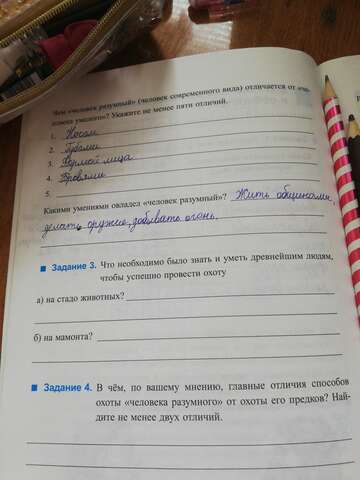 Чем «человек разумный» (человек современного вида) отличается от «че-
ловека умелого»? Укажите не менее пяти отличий.
1. Носом
2. Губами
3. Формой лица
4. Бровями
5.
Какими умениями овладел «человек разумный»? Жить общинами,
делать оружие, добывать огонь.
■ Задание 3. Что необходимо было знать и уметь древнейшим людям,
чтобы успешно провести охоту
а) на стадо животных?
б) на мамонта?
■ Задание 4. В чём, по вашему мнению, главные отличия способов
охоты «человека разумного» от охоты его предков? Най-
дите не менее двух отличий.